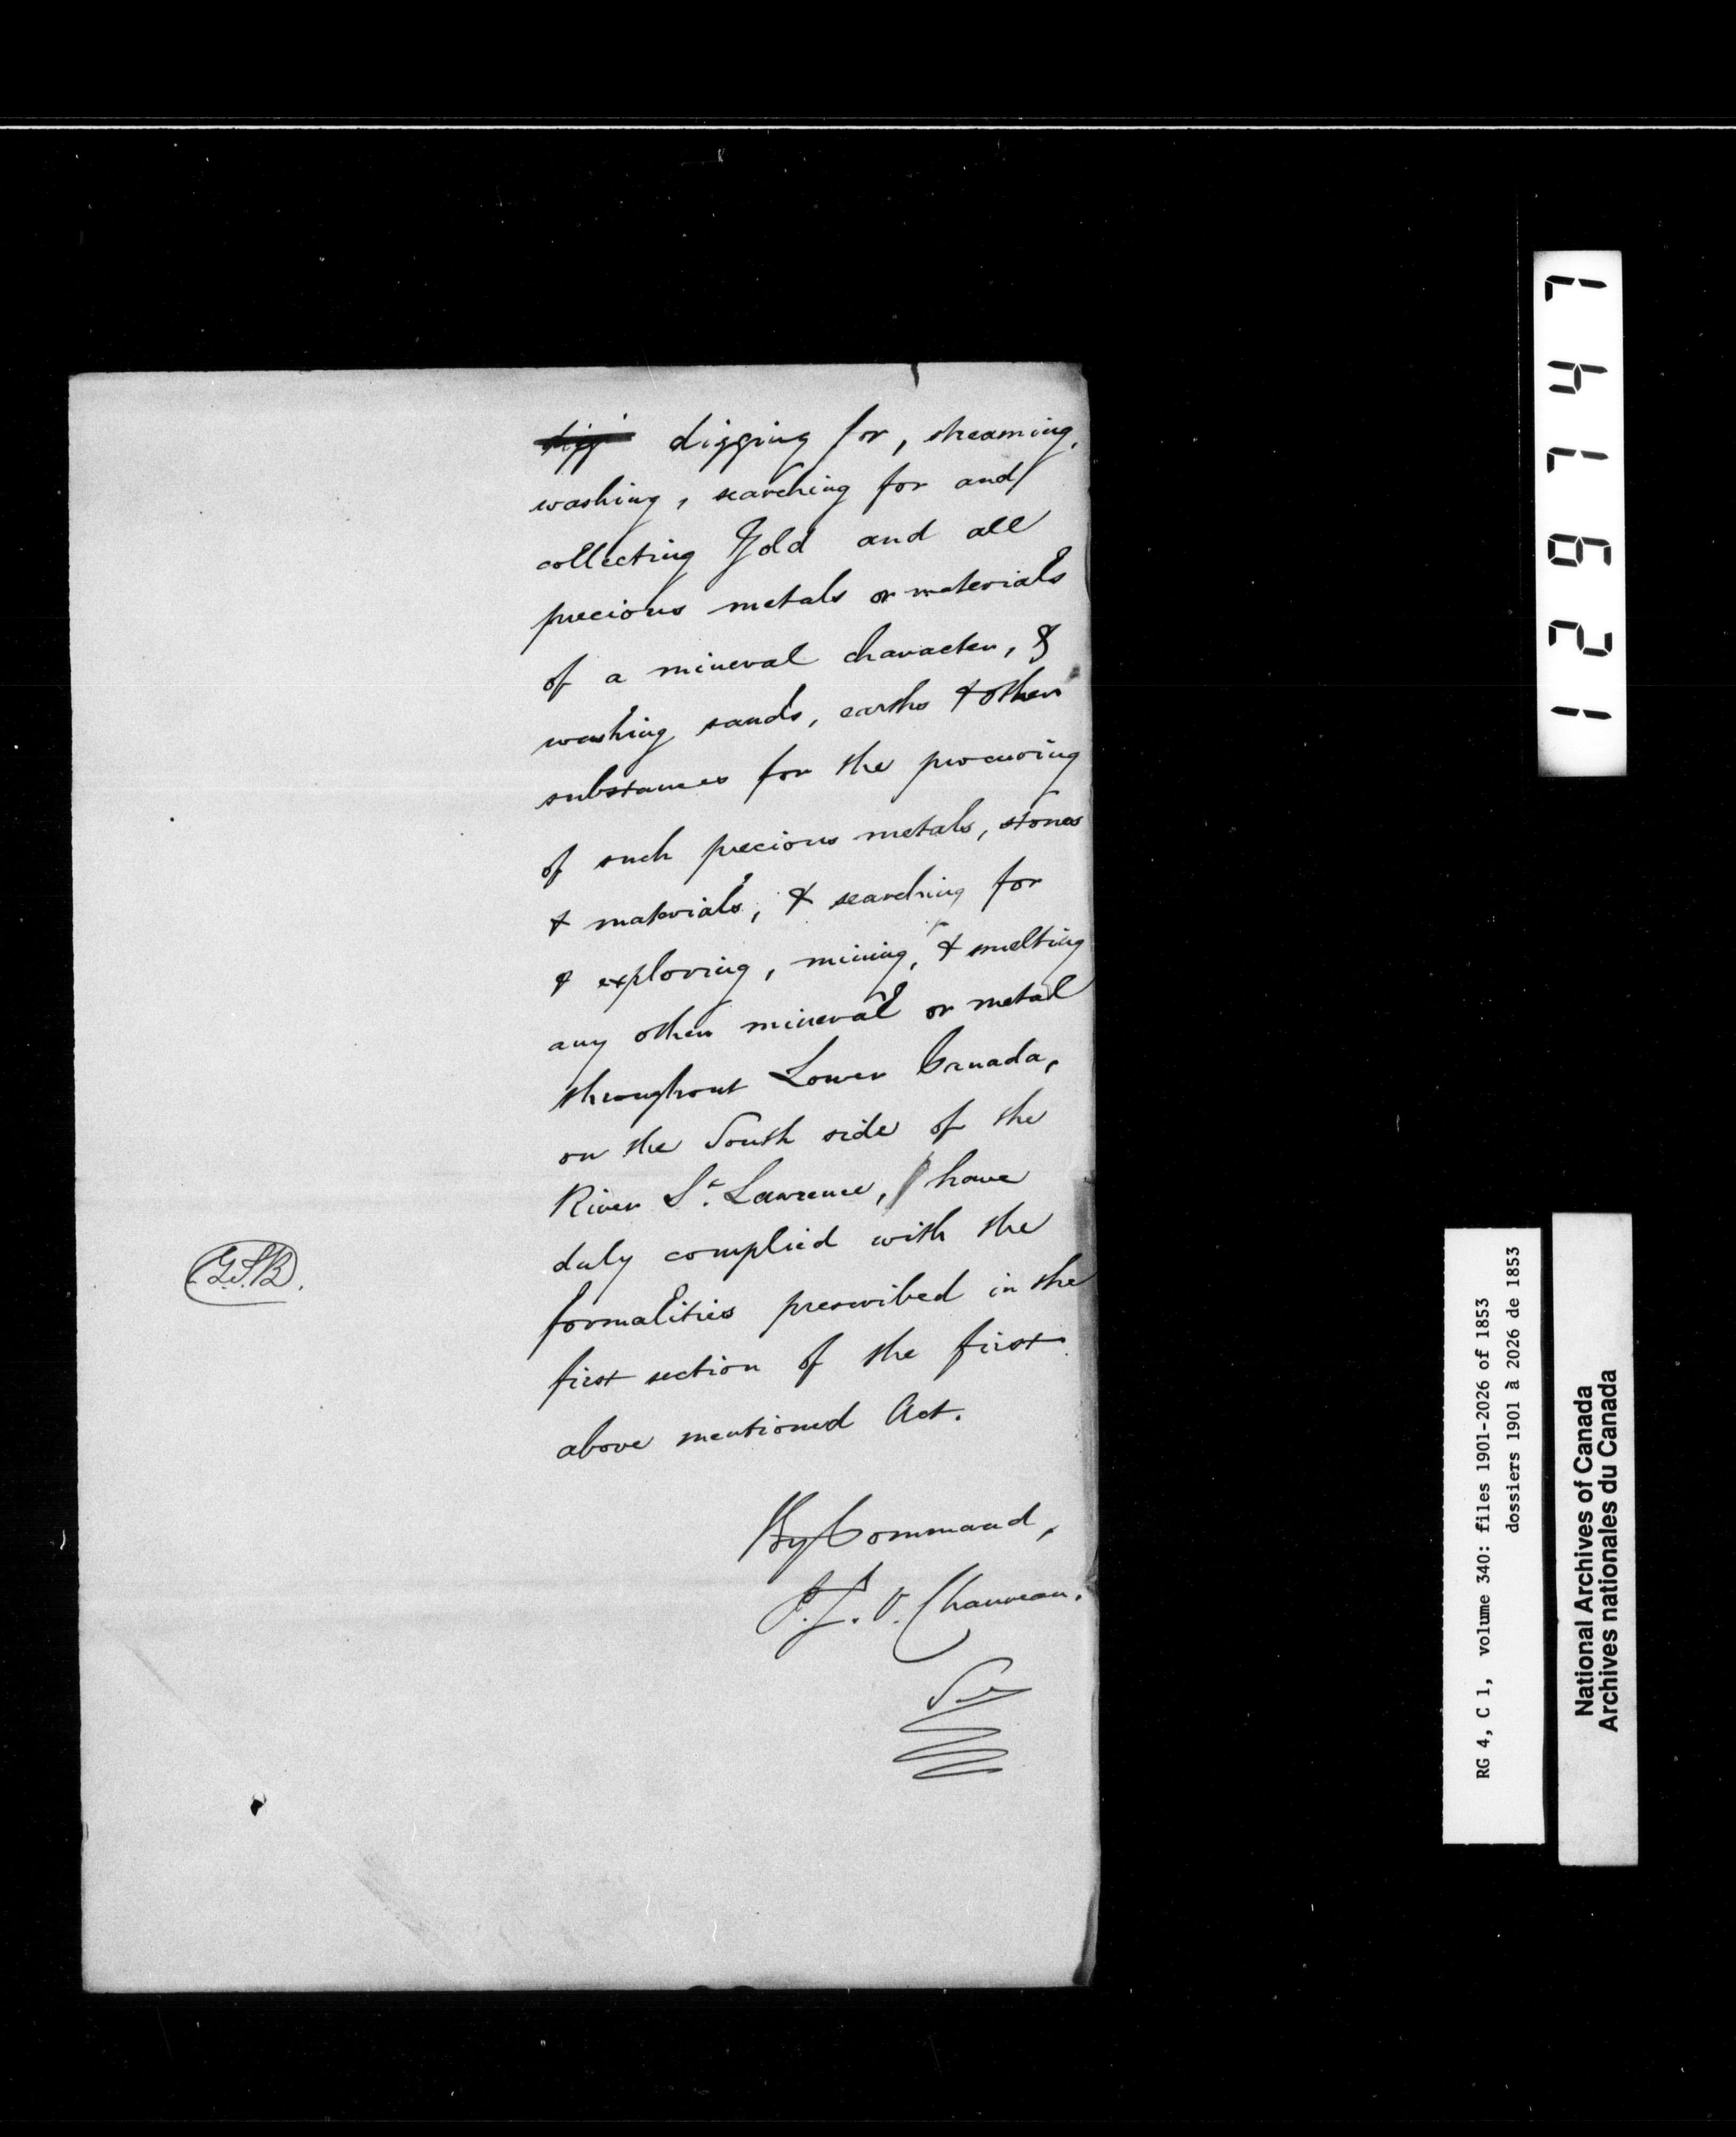 digging for, streaming,
washing, searching for and
collecting Gold and all
precious metals or materials
of a mineral character, &
washing sands, earths & other
substances for the procuring
of such precious metals, stones
& materials, & searching for
& exploring, mining, & smelting
any other mineral or metal
throughout Lower Canada,
on the South side of the
River St. Lawrence, have
duly complied with the
formalities prescribed in the
first section of the first
above mentioned Act.
By Command,
P. J. O. Chauveau.
Sec
129747
RG 4, C 1, volume 340: files 1901-2026 of 1853
dossiers 1901 à 2026 de 1853
National Archives of Canada
Archives nationales du Canada